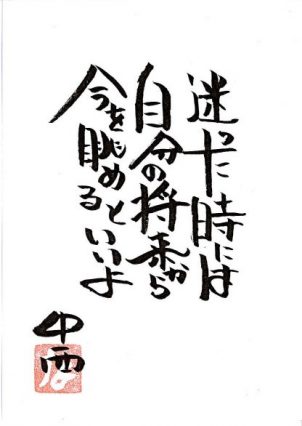 迷った時には
自分の将来から
今を眺めるといいよ
中西